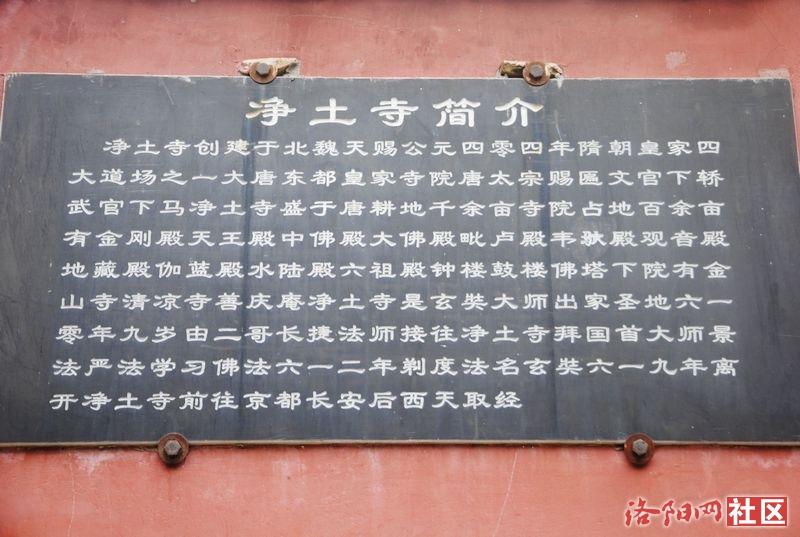 净土寺简介
净土寺创建于北魏天赐公元四零四年隋朝皇家四
大道场之一大唐东都皇家寺院唐太宗赐匾文官下轿
武官下马净土寺盛于唐耕地千余亩寺院占地百余亩
有金刚殿天王殿中佛殿大佛殿毗卢殿韦驮殿观音殿
地藏殿伽蓝殿水陆殿六祖殿钟楼鼓楼佛塔下院有金
山寺清凉寺善庆庵净土寺是玄奘大师出家圣地六一
零年九岁由二哥长捷法师接往净土寺拜国首大师景
法严法学习佛法六一二年剃度法名玄奘六一九年离
开净土寺前往京都长安后西天取经
洛阳网社区